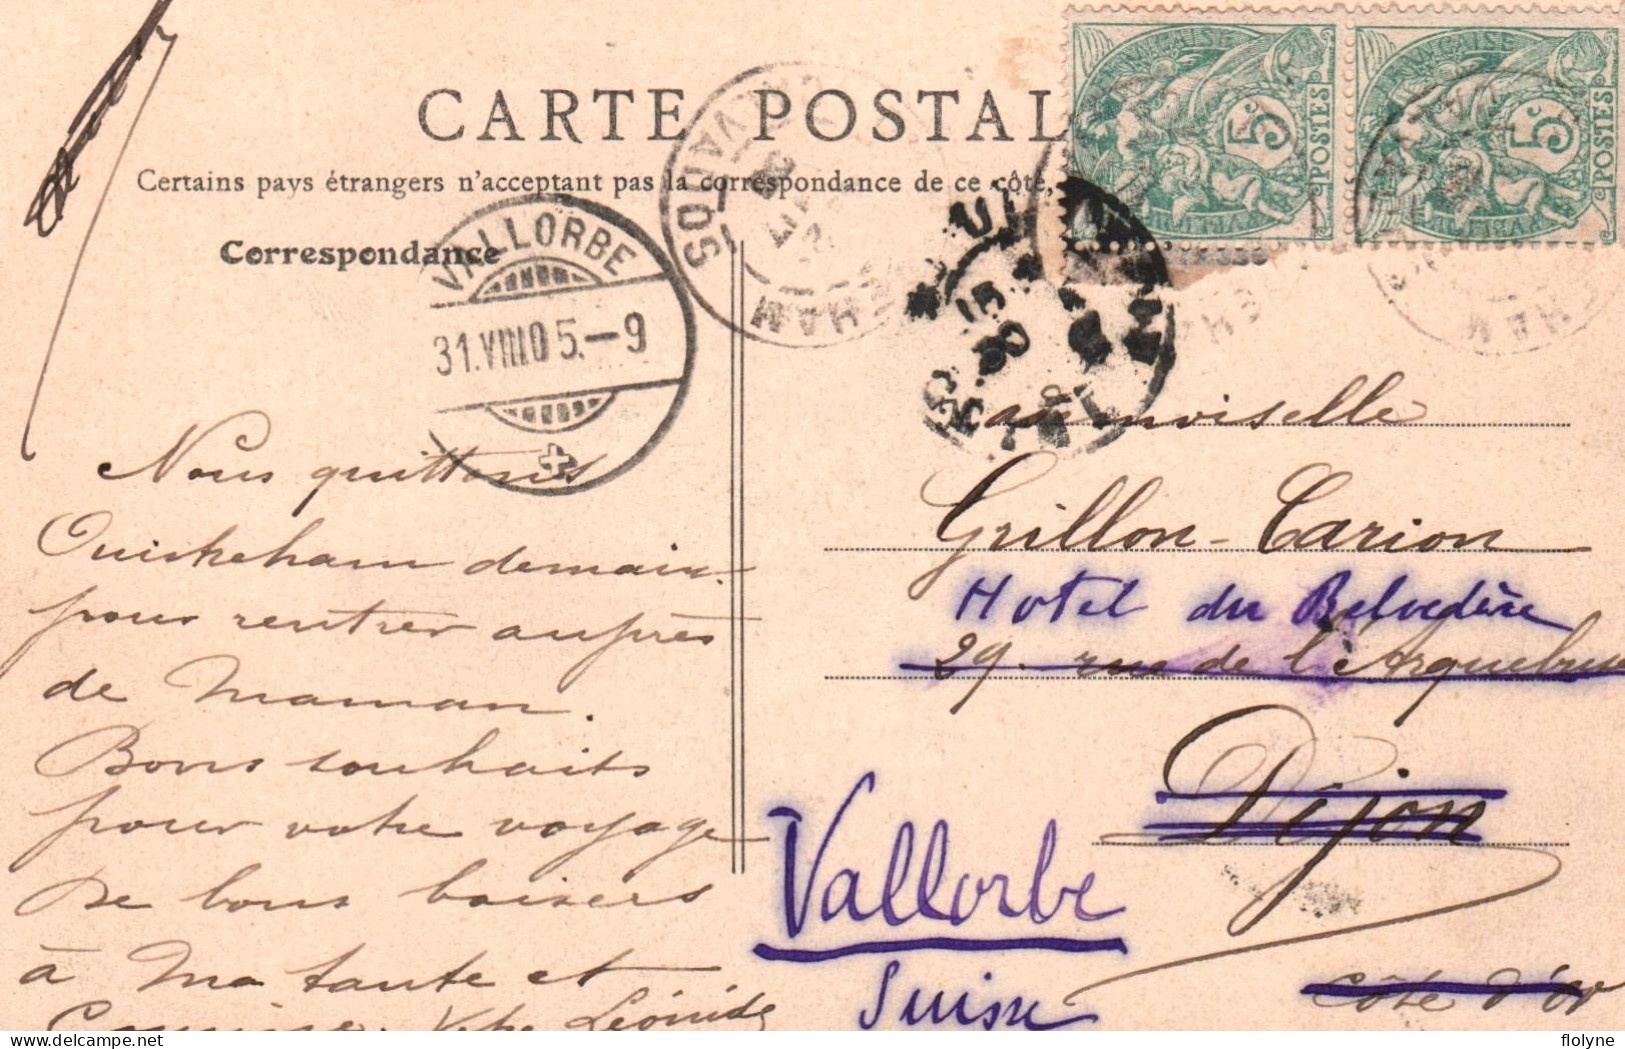 CARTE POSTAL
Certains pays étrangers n'acceptent pas la correspondance de ce côté,
Correspondance
FRANÇAISE
5c
POSTES
FRANÇAISE
5c
POSTES
VALLORBE
31.VIII.05.-9
CALVADOS
15
30
Nous quittons
Ouistreham demain
pour rentrer auprès
de Maman.
Bons souhaits
pour votre voyage
De bons baisers
à Ma tante et
Léonide
Mademoiselle
Grillon-Carion
Hotel du Belvedère
29 rue de l'Arquebuse
Dijon
Côte d'Or
Vallorbe
Suisse
flolyne